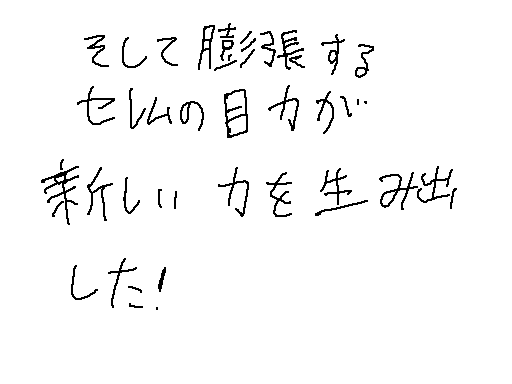 そして膨張する
セレムの目力が
新しい力を生み出
した!